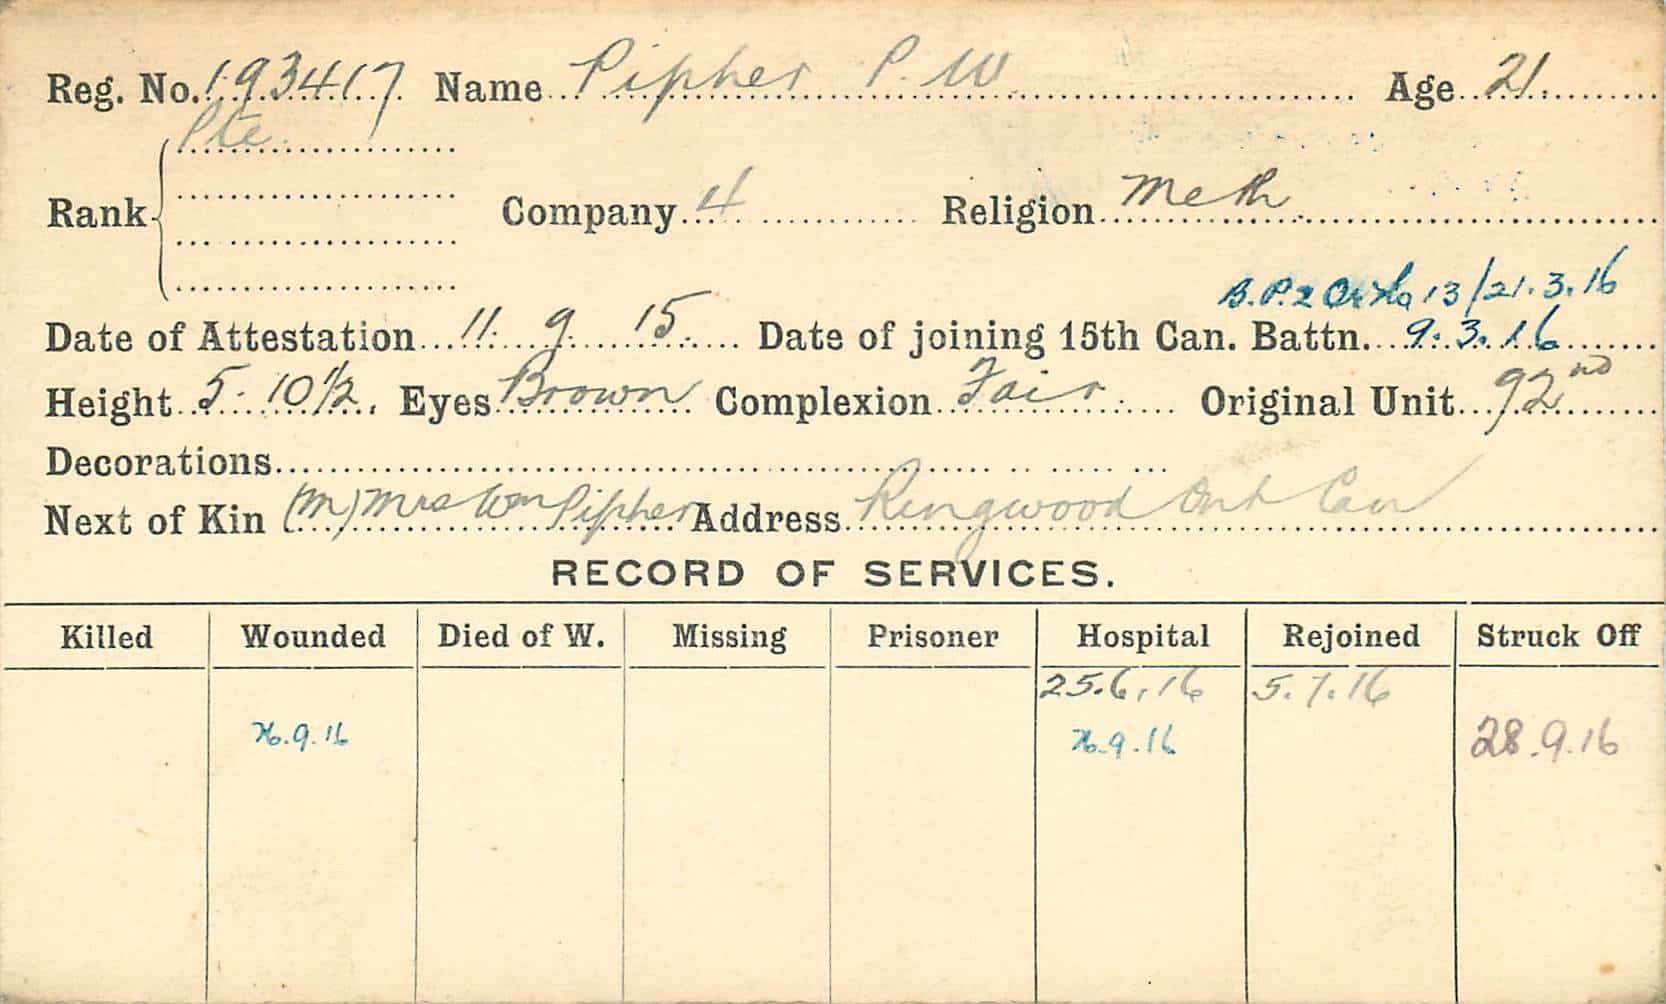 Reg. No. 193417 Name Pipher P. W. Age 21.
Pte
Rank Company 4 Religion Meth.
13/21.3.16
Date of Attestation 11. 9. 15 Date of joining 15th Can. Battn. 9.3.16
Height 5. 10 1/2. Eyes Brown Complexion Fair Original Unit 92nd
Decorations
Next of Kin (M) Mrs Wm Pipher Address Ringwood Ont Can
RECORD OF SERVICES.
Killed Wounded Died of W. Missing Prisoner Hospital Rejoined Struck Off
25.6.16 5.7.16
26.9.16 26.9.16 28.9.16